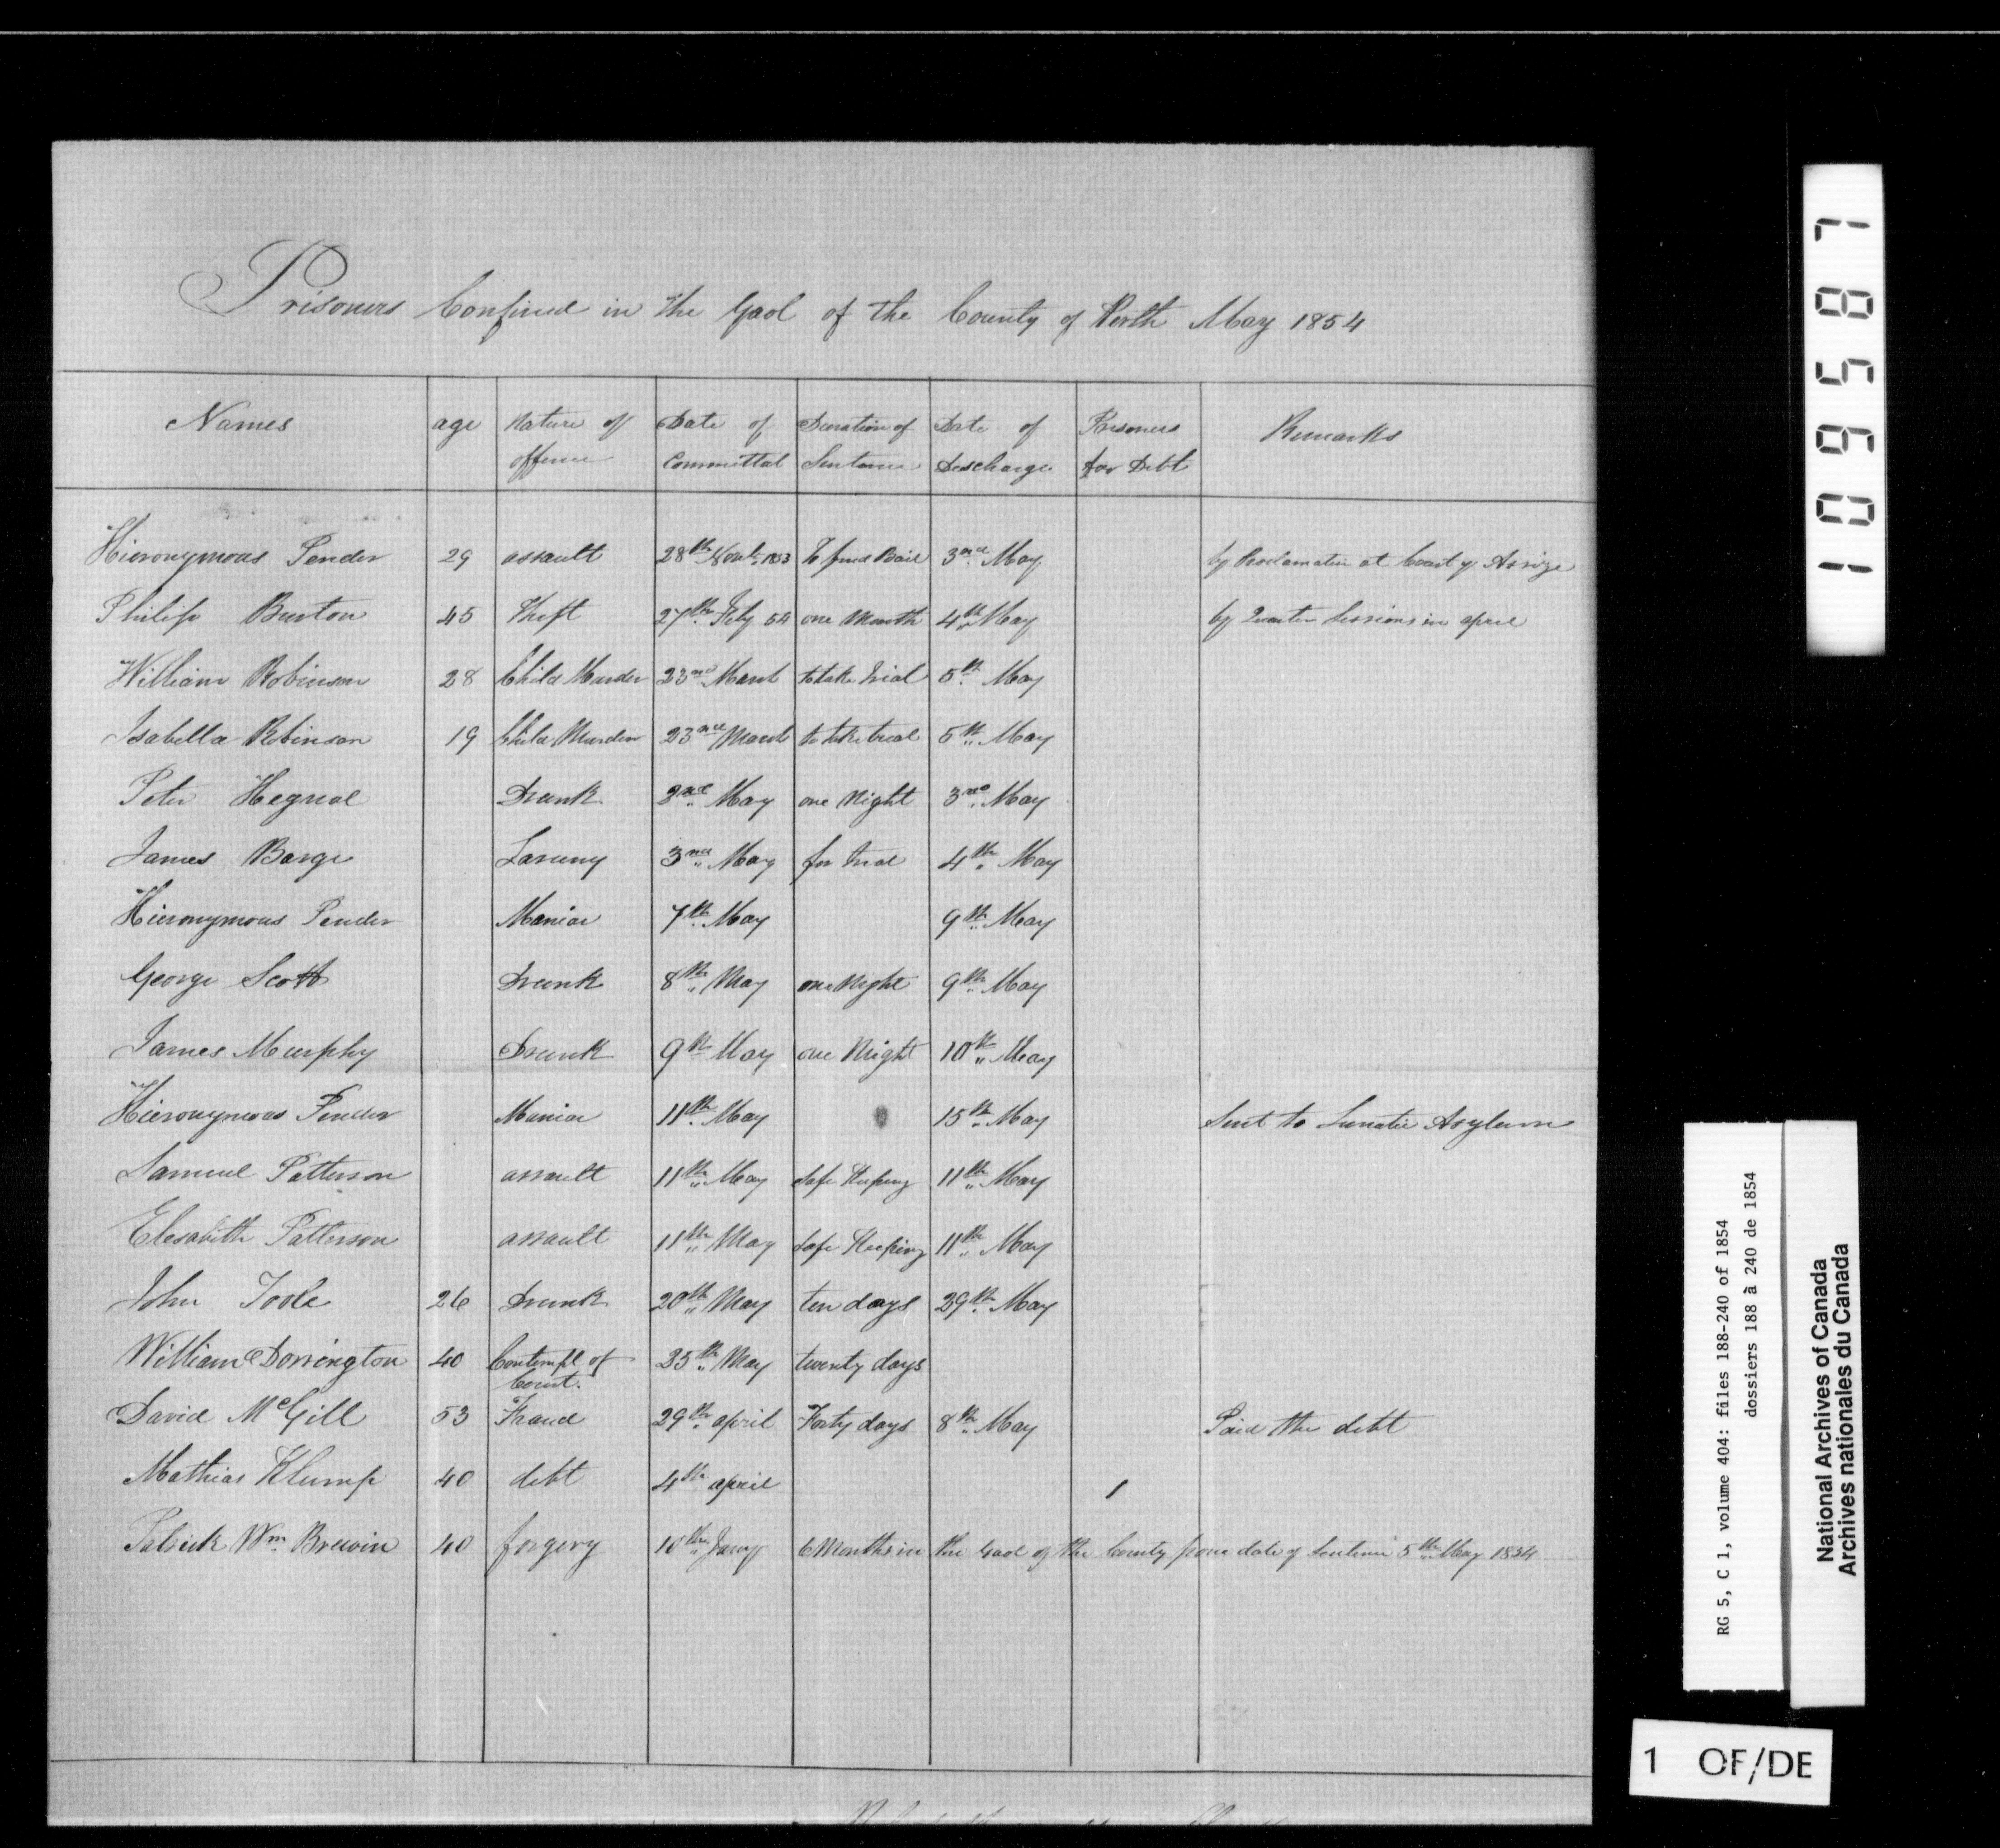 Prisoners Confined in the Gaol of the County of Perth May 1854
Names age Nature of offence Date of Committal Duration of Sentence Date of Discharge Prisoners for Debt Remarks
Hieronymous Pender 29 assault 28th Novbr 1853 To find Bail 3rd May by Proclamation at Court of Assize
Philip Burton 45 Theft 27th Feby 54 one Month 4th May by Quarter Sessions in april
William Robinson 28 Child Murder 23rd March to take trial 5th May
Isabella Robinson 19 Child Murder 23rd March to take trial 5th May
Peter Drunk 2nd May one Night 3rd May
James Barge Larceny 3rd May for trial 4th May
Hieronymous Pender Maniac 7th May 9th May
George Scott Drunk 8th May one Night 9th May
James Murphy Drunk 9th May one Night 10th May
Hieronymous Pender Maniac 11th May 15th May Sent to Lunatic Asylum
Samuel Patterson assault 11th May Safe Keeping 11th May
Elesabeth Patterson assault 11th May Safe Keeping 11th May
John Toole 26 Drunk 20th May ten days 29th May
William Dorrington 40 Contempt of Court. 25th May twenty days
David McGill 53 Fraud 29th april Forty days 8th May Paid the debt
Mathias Klump 40 debt 4th april 1
Patrick Wm. Brewin 40 forgery 10th Jany 6 Months in the Gaol of the County from date of Sentence 5th May 1854
109587
RG 5, C 1, volume 404: files 188-240 of 1854
dossiers 188 à 240 de 1854
National Archives of Canada
Archives nationales du Canada
1 OF/DE